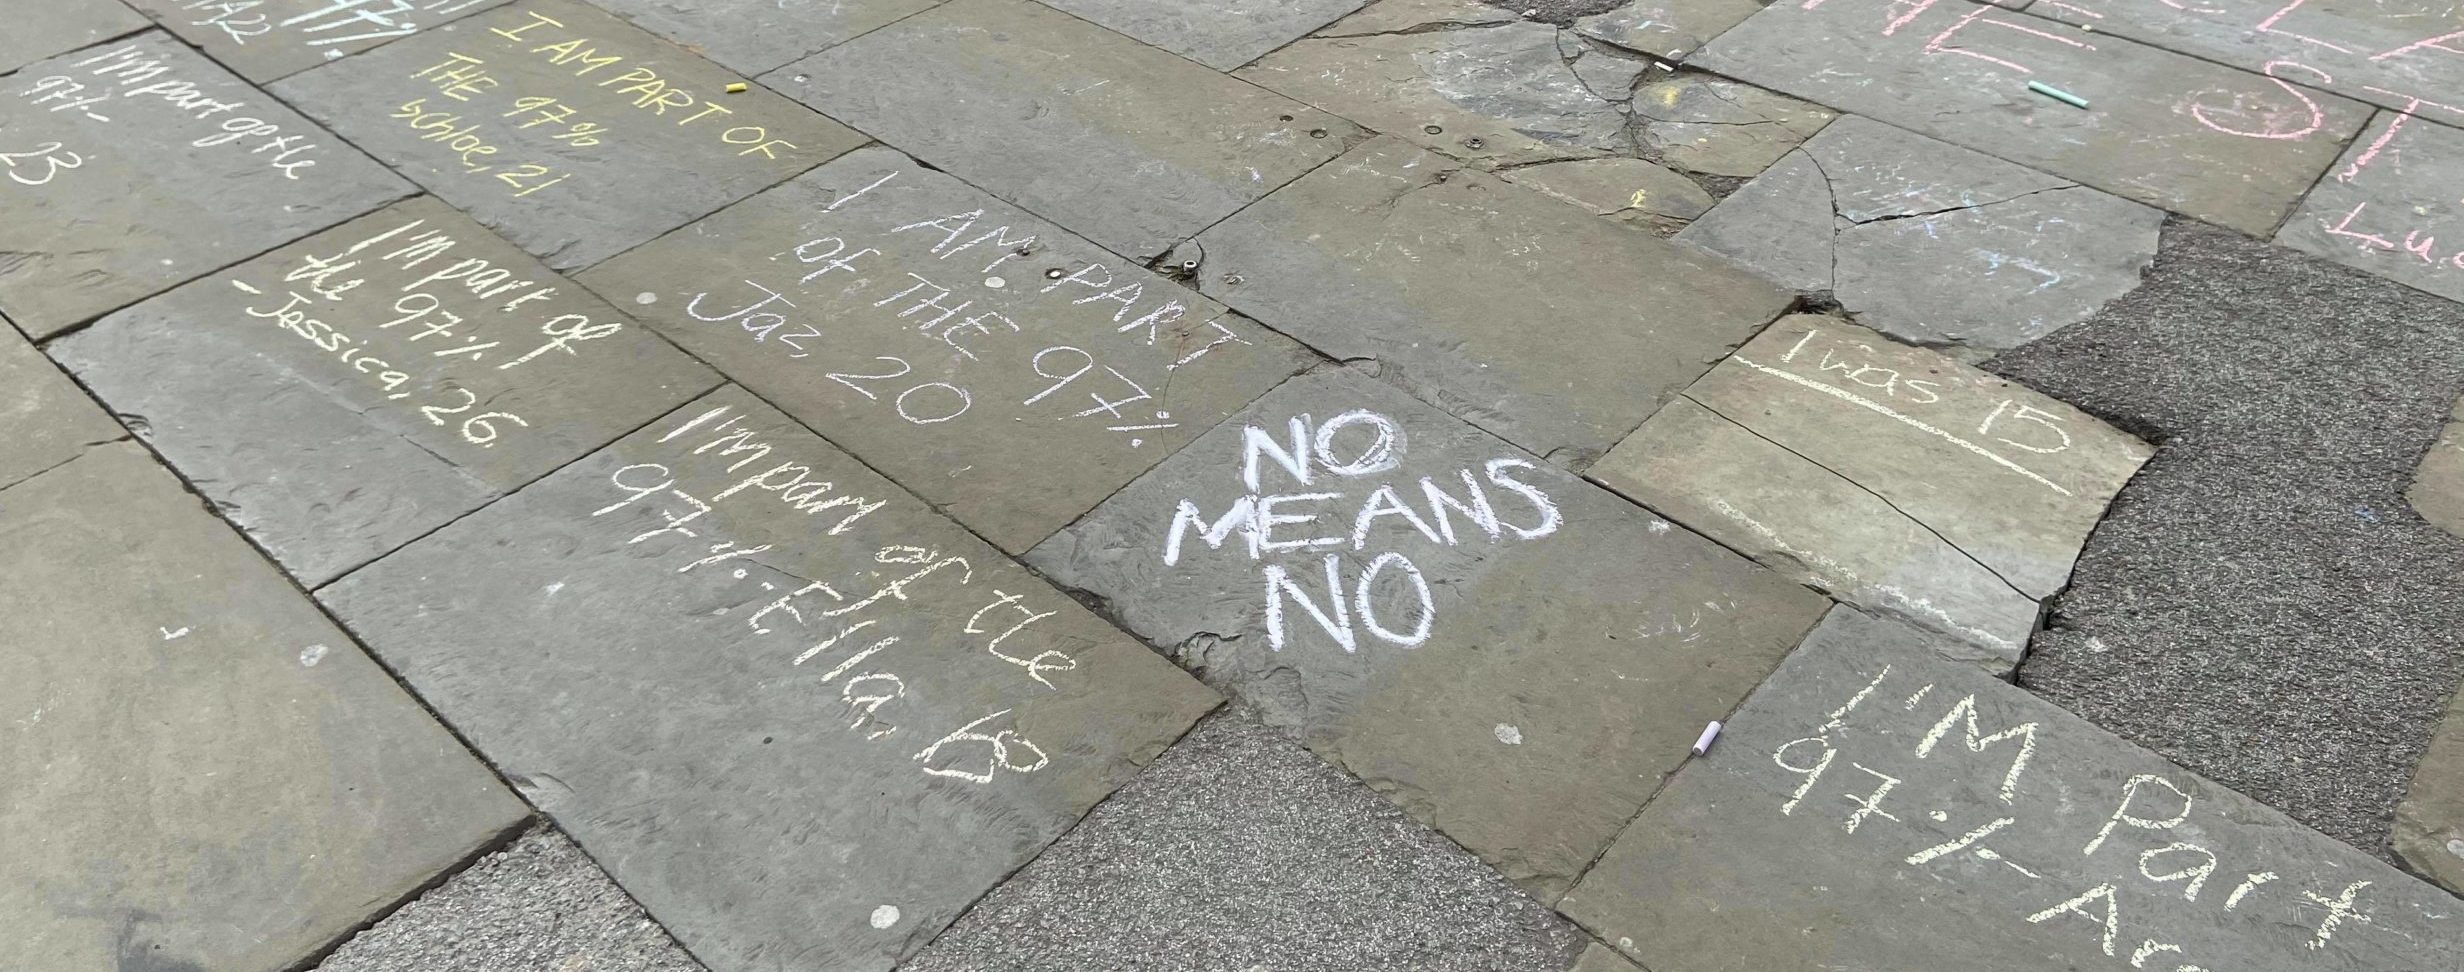 97%
I'm part of the
97%
23
I AM PART OF
THE 97%
chloe, 21
I'm part of
the 97%
- Jessica, 26.
I AM PART
of THE 97%
Jaz, 20
I'm part of the
97%. - Ella, 60
NO
MEANS
NO
I was 15
I'M Part
97%-